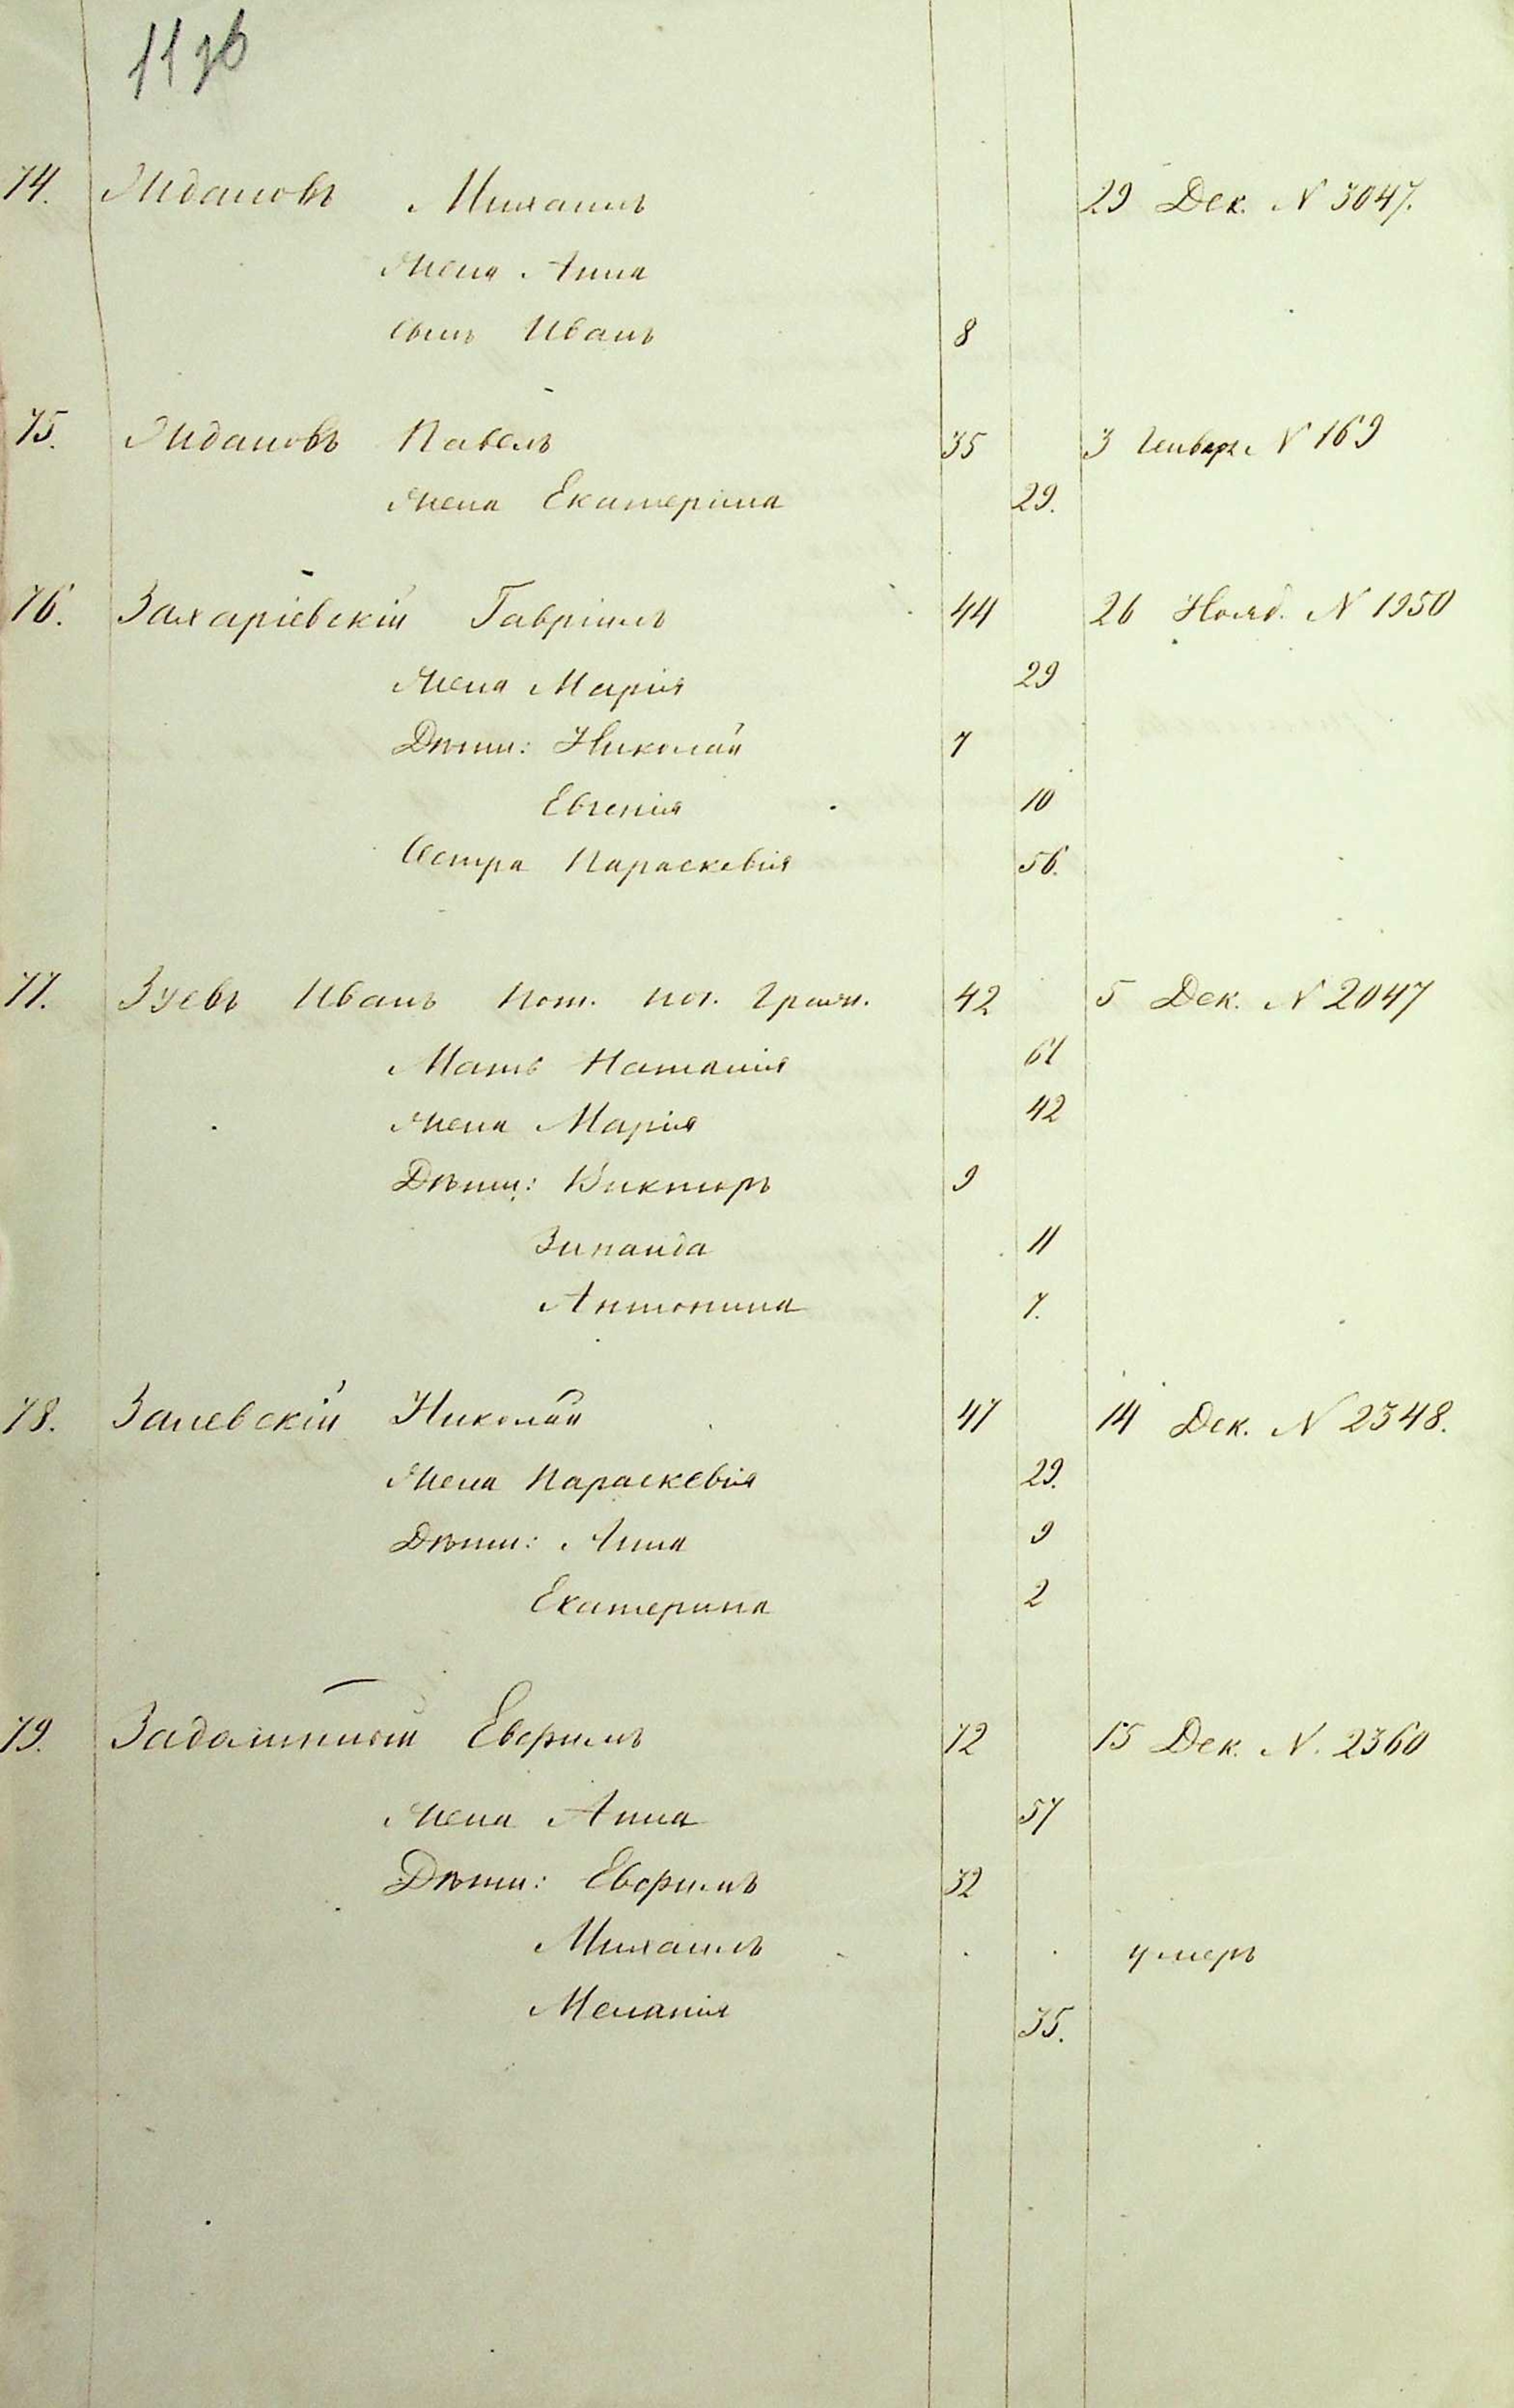 11 зв
74. Ждановъ Михаилъ 29 Дек. N 3047.
Жена Анна
сынъ Иванъ 8
75. Ждановъ Павелъ 35 3 Генвар. N 169
Жена Екатеріна 29.
76. Захаріевскій Гавріилъ 44 26 Нояб. N 1950
Жена Марія 29
Дѣти: Николай 7
Евгенія 10
Сестра Параскевія 56.
77. Зуевъ Иванъ Пот. поч. граж. 42 5 Дек. N 2047
Мать Наталія 61
Жена Марія 42
Дѣти: Викторъ 9
Зинаида 11
Антонина 7.
78. Залевскій Николай 47 14 Дек. N 2348.
Жена Параскевія 29.
Дѣти: Анна 9
Екатерина 2
79. Евфимъ 72 15 Дек. N. 2360
Жена Анна 57
Дѣти: Евфимъ 32
Михаилъ умеръ
Меланія 35.